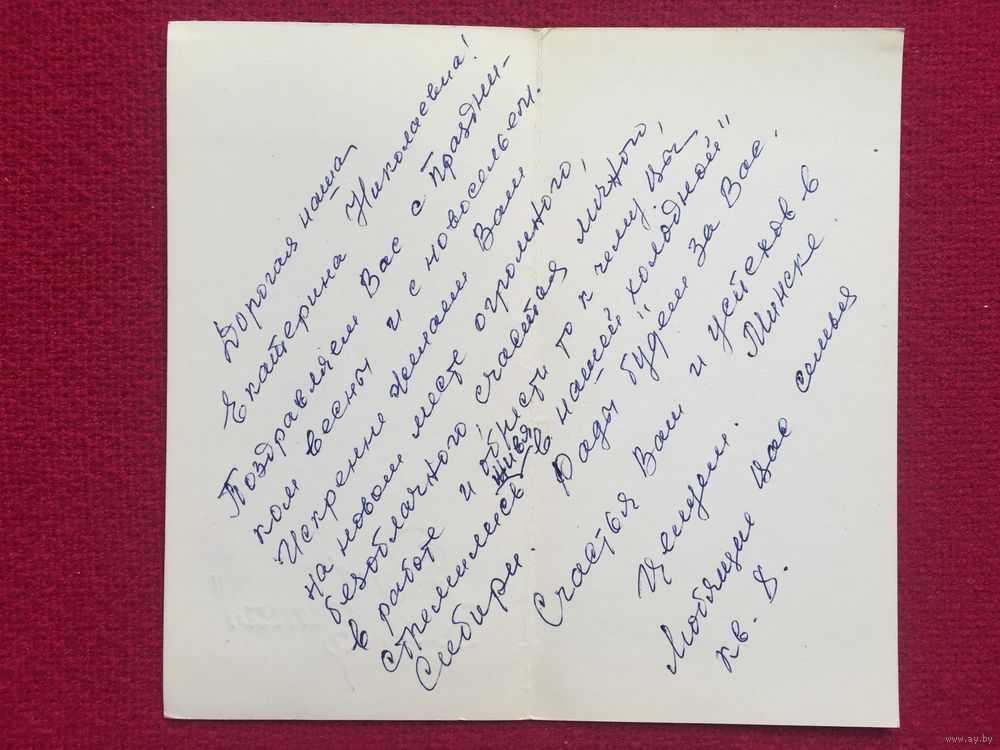 Дорогая наша
Екатерина Николаевна!
Поздравляем Вас с праздни-
ком весны и с новосельем.
Искренне желаем Вам
на новом месте огромного,
безоблачного, счастья личного,
в работе и обрести то к чему Вы
стремились живя в нашей „холодной"
Сибири Рады будем за Вас.
Счастья Вам и успехов в
Минске
Любящие вас семья
кв. 8.
www.ay.by